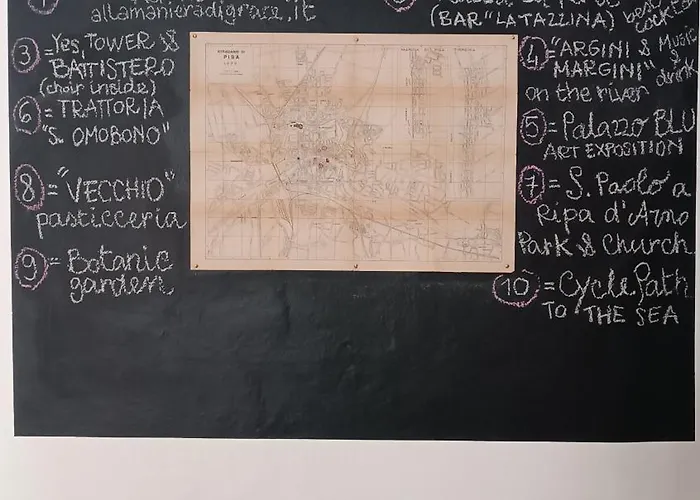 allamanieradigrace.it
(BAR "LA TAZZINA) best
cocktail
3 = Yes, TOWER &
BATTISTERO
(choir inside)
4 = "ARGINI & Music
MARGINI" & drink
on the river
6 = TRATTORIA
"S. OMOBONO"
5 = Palazzo BLU
ART EXPOSITION
8 = "VECCHIO"
pasticceria
7 = S. Paolo a
Ripa d'Arno
Park & Church
9 = Botanic
garden
10 = Cycle Path
TO THE SEA
PISA